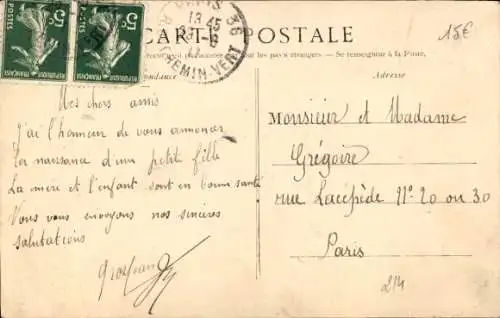 5c 5c
POSTES POSTES
REPUBLIQUE FRANÇAISE REPUBLIQUE FRANÇAISE
PARIS 36
13 45
R. CHEMIN-VERT
CARTE POSTALE
pour les pays étrangers. — Se renseigner à la Poste.
15€
Correspondance
Adresse
Mes chers amis
J'ai l'honneur de vous annoncer
la naissance d'une petite fille
La mère et l'enfant sont en bonne santé
Nous vous envoyons nos sincères
salutations
Monsieur et Madame
Grégoire
rue Lacépède N° 20 ou 30
Paris
214